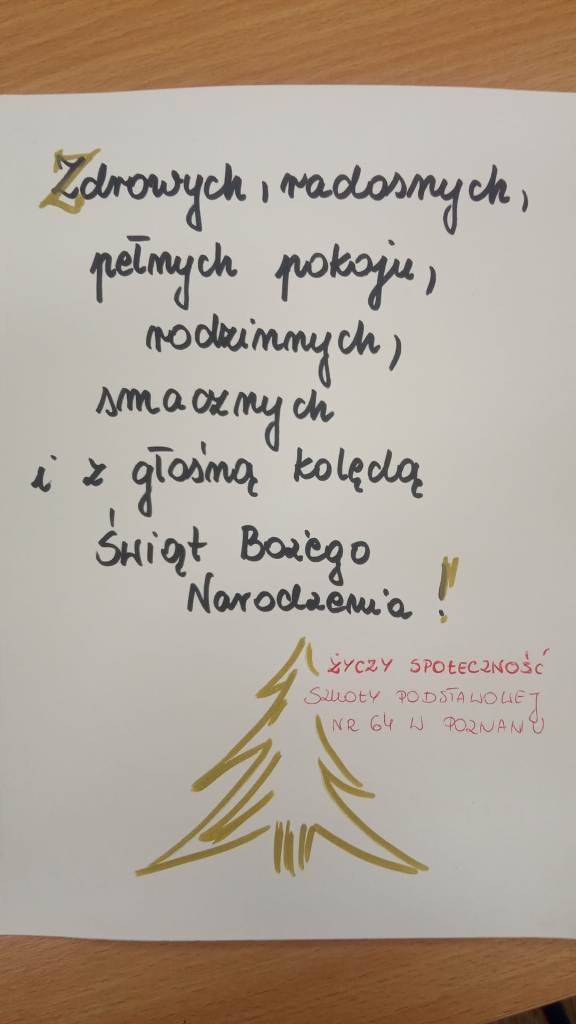 Zdrowych, radosnych,
pełnych pokoju,
rodzinnych,
smacznych
i z głośną kolędą
Świąt Bożego
Narodzenia!
ŻYCZY SPOŁECZNOŚĆ
SZKOŁY PODSTAWOWEJ
NR 64 W POZNANIU